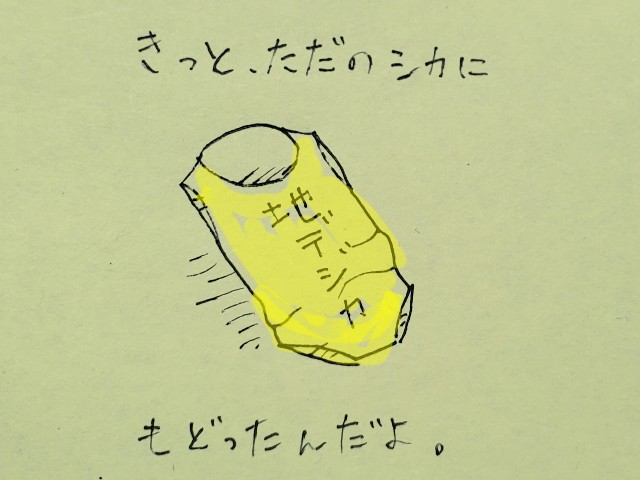 きっと、ただのシカに
地デジカ
もどったんだよ。